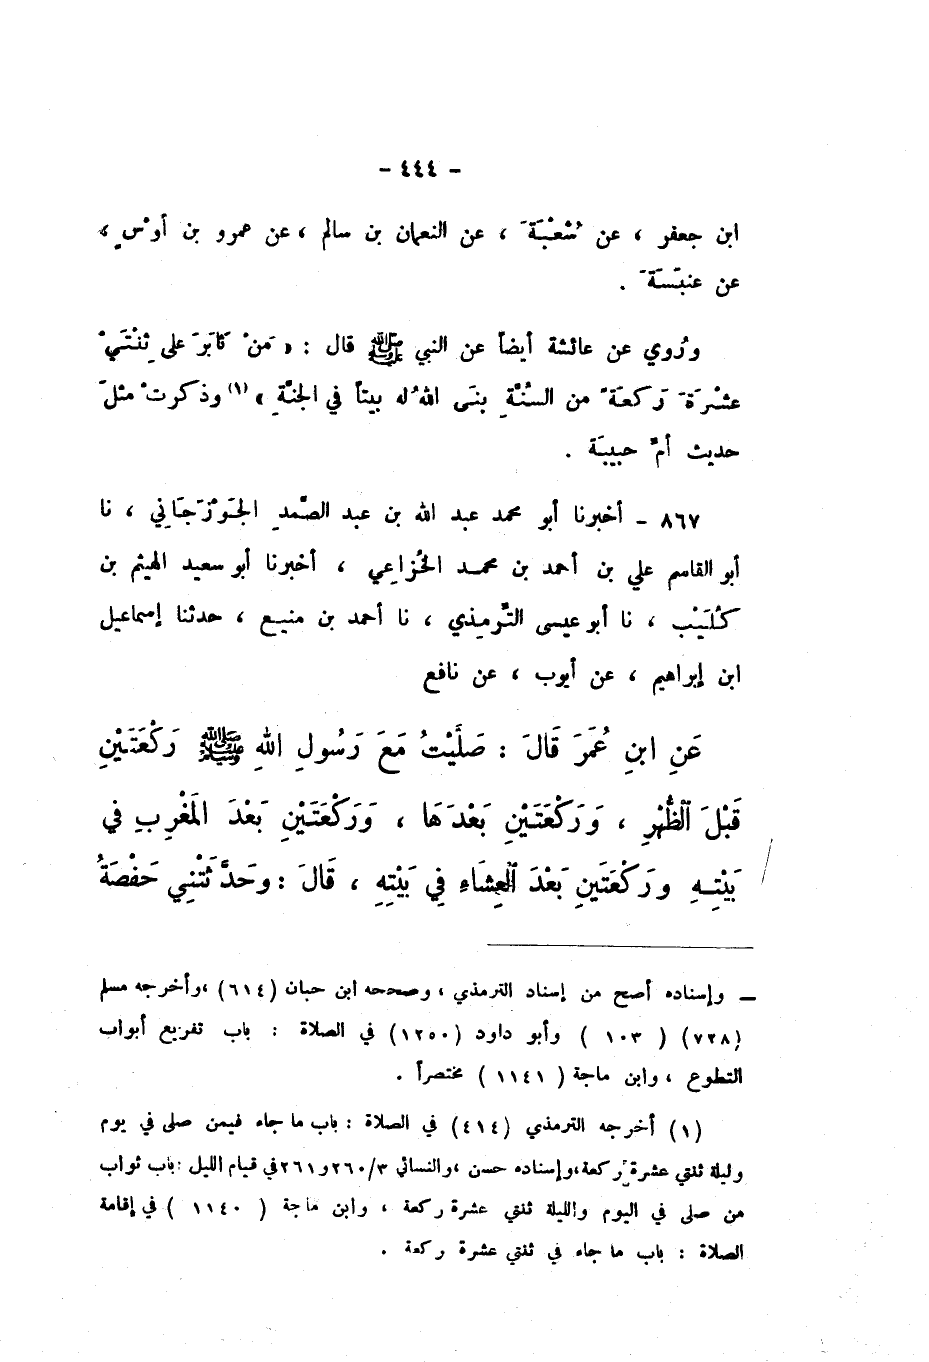 - ٤٤٤ -
ابن جعفر ، عن شُعْبَةَ ، عن النعمان بن سالم ، عن عمرو بن أوْسٍ ،
عن عنبَسَةَ .
ورُوي عن عائشة أيضاً عن النبي ﷺ قال : « مَنْ ثَابَرَ على ثِنْتَيْ
عشْرَةَ رَكعَةً من السنَّةِ بنَى اللهُ له بيتاً في الجنَّةِ » (١) وذكرتْ مثلَ
حديث أمِّ حبيبَة .
٨٦٧ - أخبرنا أبو محمد عبد الله بن عبد الصَّمدِ الجَوْزَجَاني ، نا
أبو القاسم علي بن أحمد بن محمد الخُزاعي ، أخبرنا أبو سعيد الهيثم بن
كُلَيْب ، نا أبو عيسى التِّرمِذي ، نا أحمد بن منيع ، حدثنا إسماعيل
ابن إبراهيم ، عن أيوب ، عن نافع
عَنِ ابنِ عُمَرَ قَالَ : صَلَّيْتُ مَعَ رَسُولِ اللهِ ﷺ رَكْعَتَيْنِ
قَبْلَ الظُّهْرِ ، وَرَكْعَتَيْنِ بَعْدَهَا ، وَرَكْعَتَيْنِ بَعْدَ المَغْرِبِ في
بَيْتِهِ ورَكْعَتَينِ بَعْدَ الْعِشَاءِ فِي بَيْتِهِ ، قَالَ : وحَدَّثَتْنِي حَفْصَةُ
— وإسناده أصح من إسناد الترمذي ، وصححه ابن حبان (٦١٤) ، وأخرجه مسلم
(٧٢٨) ( ١٠٣ ) وأبو داود (١٢٥٠) في الصلاة : باب تفريع أبواب
التطوع ، وابن ماجة ( ١١٤١ ) مختصراً .
(١) أخرجه الترمذي (٤١٤) في الصلاة : باب ما جاء فيمن صلى في يوم
وليلة ثنتي عشرة ركعة، وإسناده حسن ، والنسائي ٣/ ٢٦٠ و٢٦١ في قيام الليل : باب ثواب
من صلى في اليوم والليلة ثنتي عشرة ركعة ، وابن ماجة ( ١١٤٠ ) في إقامة
الصلاة : باب ما جاء في ثنتي عشرة ركعة .